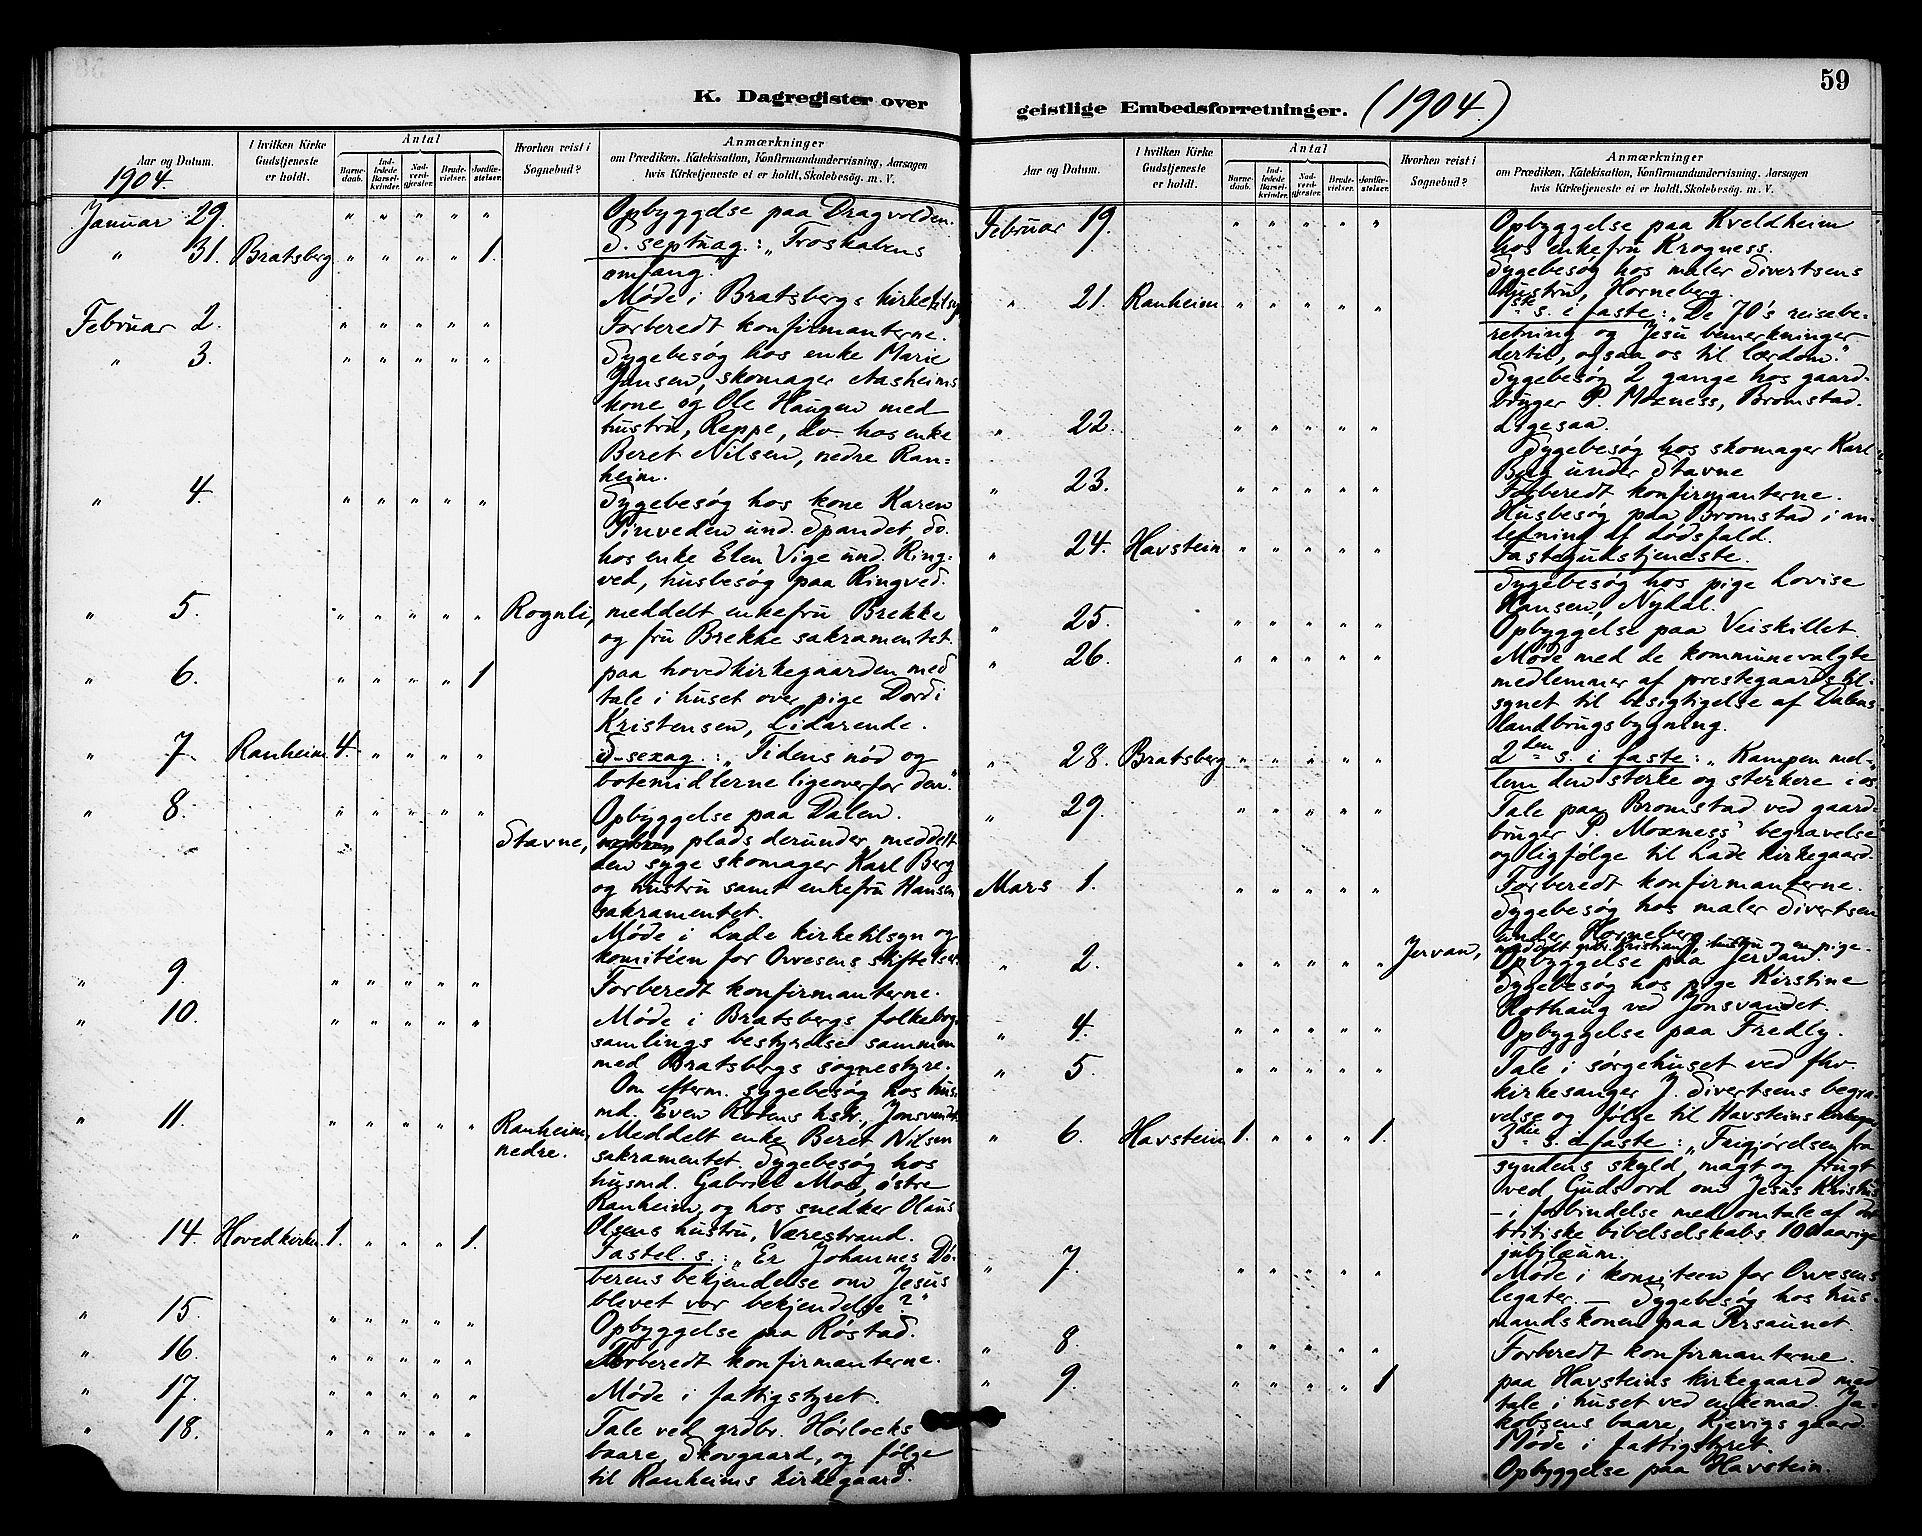 K. Dagregister over
Aar og Datum.
I hvilken Kirke Gudstjeneste er holdt.
Antal
Barnedaab.
Indledede Barselkvinder.
Nadverdgjester.
Brudevielser.
Jordfæstelser.
Hvorhen reist i Sognebud?
Anmærkninger
om Prædiken, Katekisation, Konfirmandundervisning, Aarsagen
hvis Kirketjeneste ei er holdt, Skolebesøg. m. V.
1904.
Januar 29. " " " " " Opbyggelse paa Dragvolden.
" 31. Bratsberg " " " " 1. S. septuag.: „Troskabens
omfang."
Møde i Bratsbergs kirketilsyn
Februar 2. " " " " " Forberedt konfirmanterne.
" 3. " " " " " Sygebesøg hos enke Marie
Jensen, skomager Aasheims
kone og Ole Haugen med
hustru, Reppe, do. hos enke
Beret Nilsen, nedre Ran-
heim.
" 4. " " " " " Sygebesøg hos kone Karen
Tinveden und. Spandet, do.
hos enke Elen Vige und. Ring-
ved, husbesøg paa Ringved.
" 5. " " " " " Rognli, meddelt enkefru Brekke
og fru Brekke sakramentet.
" 6. " " " " 1 paa hovedkirkegaarden med
tale i huset over pige Dordi
Kristensen, Lidarende.
" 7 Ranheim 4. " " " " S. sexag.: „Tidens nød og
botemidlerne ligeoverfor den."
" 8. " " " " " Opbyggelse paa Dalen.
Stavne, plads derunder, meddelt
den syge skomager Karl Berg
og hustru samt enkefru Hansen
sakramentet.
Møde i Lade kirketilsyn og
komitéen for Owesens stiftelser.
" 9. " " " " " Forberedt konfirmanterne.
" 10. " " " " " Møde i Bratsbergs folkebog-
samlings bestyrelse sammen
med Bratsbergs sognestyre.
Om efterm. sygebesøg hos hus-
md. Even Rotens hstr., Jonsvandet.
" 11. " " " " " Ranheim, nedre. Meddelt enke Beret Nilsen
sakramentet. Sygebesøg hos
husmd. Gabriel Moe, østre
Ranheim, og hos snedker Olaus
Olsens hustru, Værestrand.
" 14 Hovedkirken 1. " " " 1. Fastel. s.: „Er Johannes Dø-
berens bekjendelse om Jesus
blevet vor bekjendelse?"
" 15. " " " " " Opbyggelse paa Røstad.
" 16. " " " " " Forberedt konfirmanterne.
" 17. " " " " " Møde i fattigstyret.
" 18. " " " " " Tale ved grdbr. Hørlocks
baare, Skovgaard, og følge
til Ranheims kirkegaard.
geistlige Embedsforretninger. (1904.)
59
Aar og Datum.
I hvilken Kirke Gudstjeneste er holdt.
Antal
Barnedaab.
Indledede Barselkvinder.
Nadverdgjester.
Brudevielser.
Jordfæstelser.
Hvorhen reist i Sognebud?
Anmærkninger
om Prædiken, Katekisation, Konfirmandundervisning, Aarsagen
hvis Kirketjeneste ei er holdt, Skolebesøg. m. V.
Februar 19. " " " " " Opbyggelse paa Kveldheim
hos enkefru Krogness.
Sygebesøg hos maler Sivertsens
hustru, Horneberg.
" 21. Ranheim " " " " " 1ste s. i faste: „De 70's reisebe-
retning og Jesu bemerkninger
dertil, ogsaa os til lærdom."
Sygebesøg 2 gange hos gaard-
bruger P. Moxness, Bromstad.
" 22. " " " " " Ligesaa.
Sygebesøg hos skomager Karl
Berg under Stavne
" 23. " " " " " Forberedt konfirmanterne.
Husbesøg paa Bromstad i an-
ledning af dødsfald.
" 24. Havstein " " " " " Fastegudstjeneste.
Sygebesøg hos pige Lovise
Hansen, Nydal.
" 25. " " " " " Opbyggelse paa Veiskillet.
" 26. " " " " " Møde med de kommunevalgte
medlemmer af prestegaardstil-
synet til besigtigelse af Dalens
landbrugsbygning.
" 28. Bratsberg " " " " " 2den s. i faste: „Kampen mel-
lem den sterke og sterkere i os."
" 29. " " " " " Tale paa Bromstad ved gaard-
bruger P. Moxness' begravelse
og ligfølge til Lade kirkegaard.
Mars 1. " " " " " Forberedt konfirmanterne.
Sygebesøg hos maler Sivertsen
under Horneberg
" 2. " " " " " Jervan, meddelt grdbr. Kristian J., hustru og en pige.
Opbyggelse paa Jervan.
Sygebesøg hos pige Kirstine
Rothaug ved Jonsvandet.
" 4. " " " " " Opbyggelse paa Fredly.
" 5. " " " " " Tale i sørgehuset ved fhv.
kirkesanger J. Sivertsens begra-
velse og følge til Havsteins kirkegaard
" 6. Havstein 1. " " " 1. 3die s. i faste: „Frigjørelsen fra
syndens skyld, magt og frugt
ved Guds ord om Jesus Kristus
– i forbindelse med omtale af det
britiske bibelselskabs 100aarige
jubilæum.
" 7. " " " " " Møde i komiteen for Owesens
legater. – Sygebesøg hos hus-
mandskonen paa Persaunet.
" 8. " " " " " Forberedt konfirmanterne.
" 9. " " " " 1 paa Havsteins kirkegaard med
tale i huset ved enkemad. Ja-
kobsens baare, Kievigs gaard.
Møde i fattigstyret.
Opbyggelse paa Havstein.